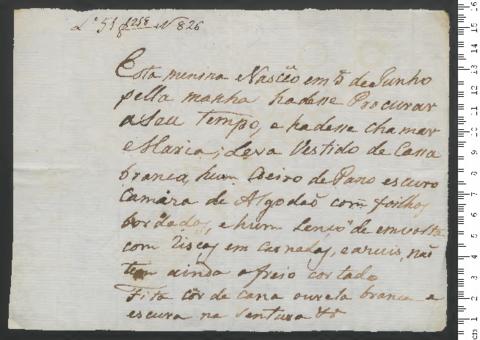 Lº 51 f 258 N 826
Esta menina Nasceo em 5 de Junho
pella manha hadesse Procurar
a Seu tempo, e hadesse chamar
e Maria; Leva Vestido de Cassa
branca, hum Coeiro de Pano escuro
Camiza de Algodaõ com folhos
bordados, e hum Lenço de em volta
com Riscas em carnadas, e azuis, não
tem ainda o freio cortado
Fita côr de cana ourela branca e
escura na Sentura &ª
cm 1 2 3 4 5 6 7 8 9 10 11 12 13 14 15 16